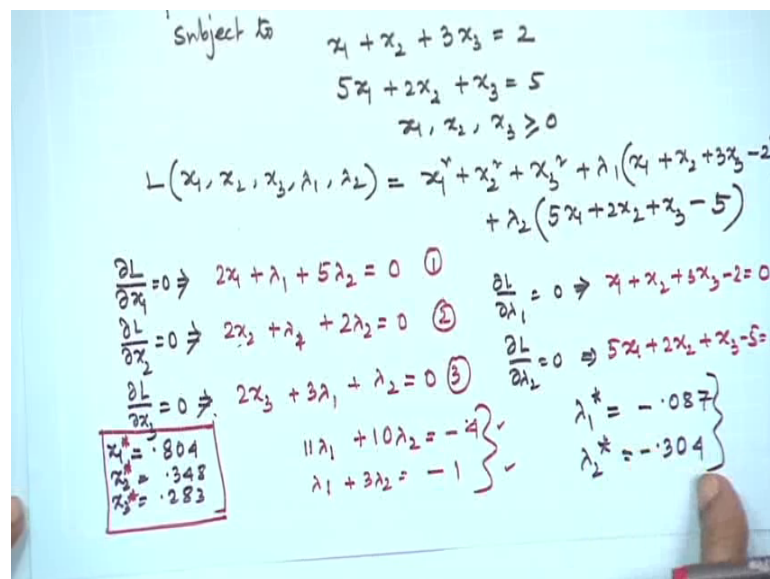 Subject to
x₁ + x₂ + 3x₃ = 2
5x₁ + 2x₂ + x₃ = 5
x₁, x₂, x₃ ≥ 0
L(x₁, x₂, x₃, λ₁, λ₂) = x₁² + x₂² + x₃² + λ₁(x₁ + x₂ + 3x₃ - 2
+ λ₂(5x₁ + 2x₂ + x₃ - 5)
∂L/∂x₁ = 0 ⇒ 2x₁ + λ₁ + 5λ₂ = 0 ①
∂L/∂x₂ = 0 ⇒ 2x₂ + λ₁ + 2λ₂ = 0 ②
∂L/∂x₃ = 0 ⇒ 2x₃ + 3λ₁ + λ₂ = 0 ③
∂L/∂λ₁ = 0 ⇒ x₁ + x₂ + 3x₃ - 2 = 0
∂L/∂λ₂ = 0 ⇒ 5x₁ + 2x₂ + x₃ - 5 =
11λ₁ + 10λ₂ = -4
λ₁ + 3λ₂ = -1
λ₁* = -.087
λ₂* = -.304
x₁* = .804
x₂* = .348
x₃* = .283